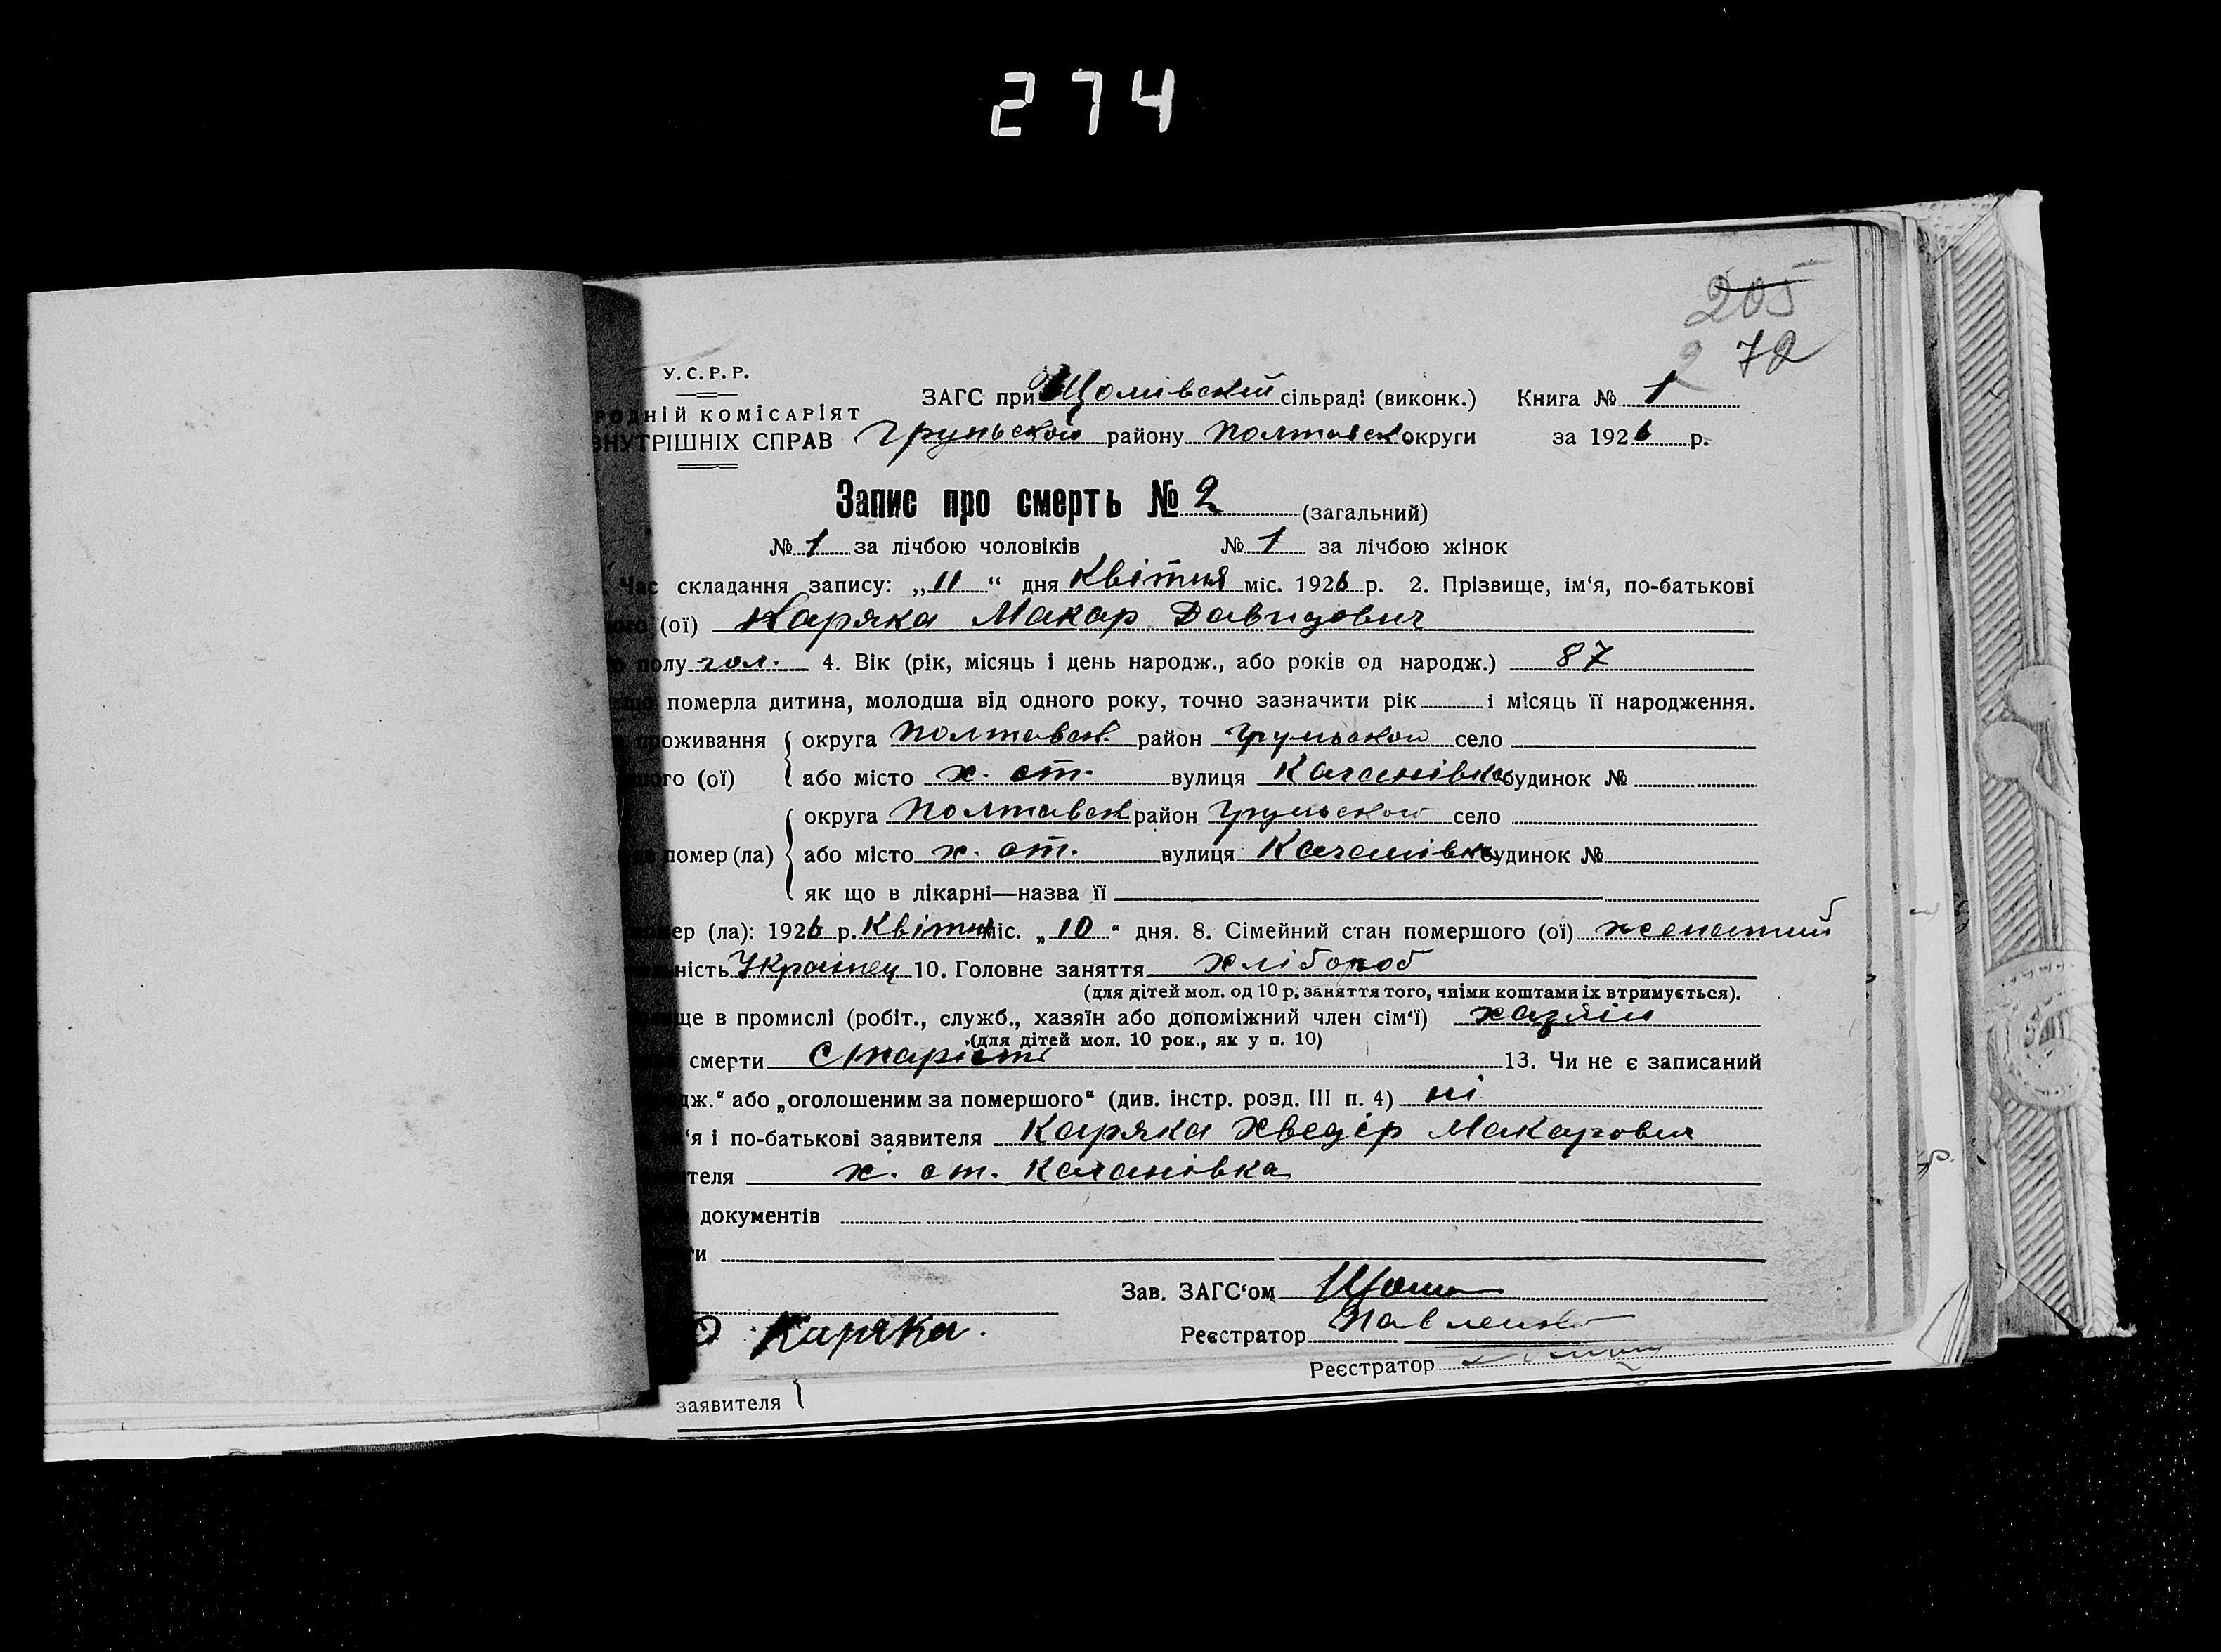 274
205
2 72
У.С.Р.Р.
РОДНІЙ КОМІСАРІЯТ
ВНУТРІШНІХ СПРАВ
ЗАГС при Щомівській сільраді (виконк.) Книга № 1
Груньского району Полтавськ округи за 1926 р.
Запис про смерть № 2 (загальний)
№ 1 за лічбою чоловіків № 1 за лічбою жінок
Час складання запису: „11“ дня Квітня міс. 1926 р. 2. Прізвище, ім‘я, по-батькові
ого (ої) Каряка Макар Давидович
полу чол. 4. Вік (рік, місяць і день народж., або років од народж.) 87
що померла дитина, молодша від одного року, точно зазначити рік і місяць її народження.
проживання округа Полтавськ. район Груньского село
шого (ої) або місто х. ст. вулиця Качанівка будинок №
округа Полтавськ район Груньского село
де помер (ла) або місто х. ст. вулиця Качанівка будинок №
як що в лікарні—назва її
помер (ла): 1926 р. Квітня міс. „10“ дня. 8. Сімейний стан помершого (ої) женатий
ність Українец 10. Головне заняття хлібороб
(для дітей мол. од 10 р. заняття того, чиїми коштами їх втримується).
ще в промислі (робіт., служб., хазяїн або допоміжний член сім‘ї) хазяін
(для дітей мол. 10 рок., як у п. 10)
смерти Старість 13. Чи не є записаний
дж.“ або „оголошеним за помершого“ (див. інстр. розд. III п. 4) ні
‘я і по-батькові заявителя Каряка Хведір Макарович
теля х. ст. Качанівка
документів
ти
Зав. ЗАГС‘ом
Каряка. Реєстратор Павленко
Реєстратор
заявителя